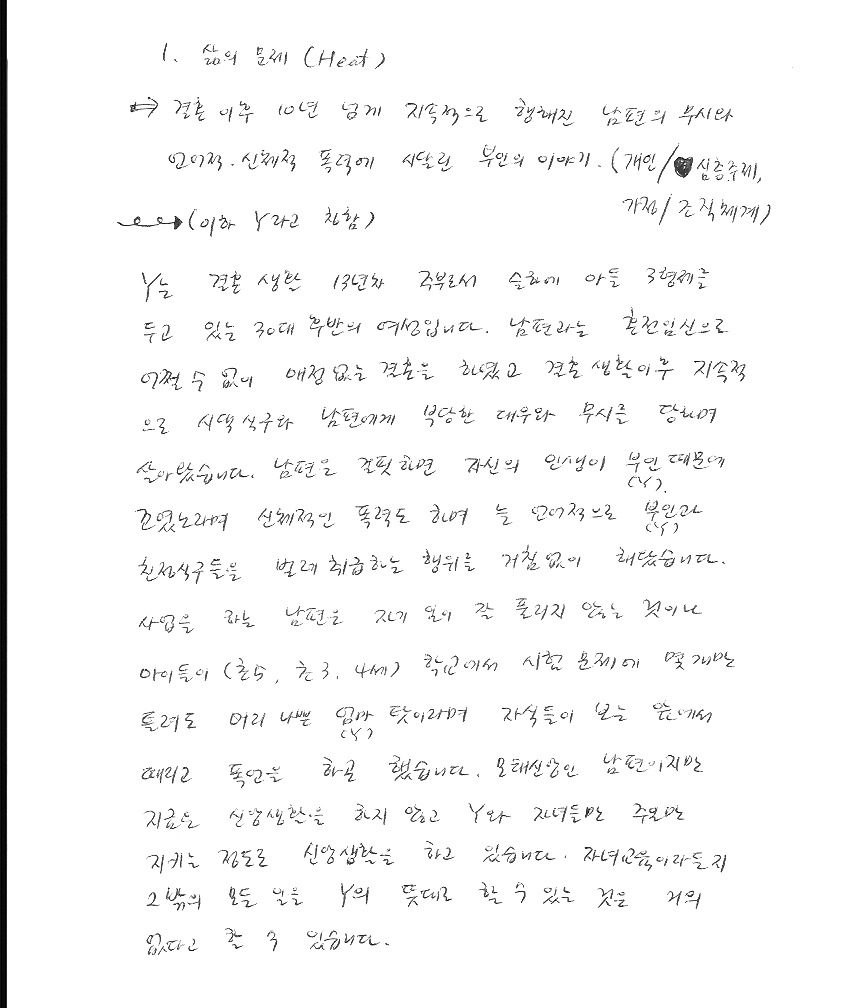 1. 삶의 문제 (Heat)
⇒ 결혼 이후 10년 넘게 지속적으로 행해진 남편의 무시와
언어적·신체적 폭력에 시달린 부인의 이야기. (개인/심층주제,
가정/조직체계)
(이하 Y라고 칭함)
Y는 결혼 생활 13년차 주부로서 슬하에 아들 3형제를
두고 있는 30대 후반의 여성입니다. 남편과는 혼전임신으로
어쩔 수 없이 애정 없는 결혼을 하였고 결혼 생활이후 지속적
으로 시댁 식구와 남편에게 부당한 대우와 무시를 당하며
살아왔습니다. 남편은 걸핏하면 자신의 인생이 부인 때문에
(Y)
꼬였노라며 신체적인 폭력도 하며 늘 언어적으로 부인과
(Y)
친정식구들을 벌레 취급하는 행위를 거침없이 해댔습니다.
사업을 하는 남편은 자기 일이 잘 풀리지 않는 것이나
아이들이 (초5, 초3, 4세) 학교에서 시험 문제에 몇 개만
틀려도 머리 나쁜 엄마 탓이라며 자식들이 보는 앞에서
(Y)
때리고 폭언을 하곤 했습니다. 모태신앙인 남편이지만
지금은 신앙생활을 하지 않고 Y와 자녀들만 주일만
지키는 정도로 신앙생활을 하고 있습니다. 자녀교육이라든지
그 밖의 모든 일을 Y의 뜻대로 할 수 있는 것은 거의
없다고 할 수 있습니다.